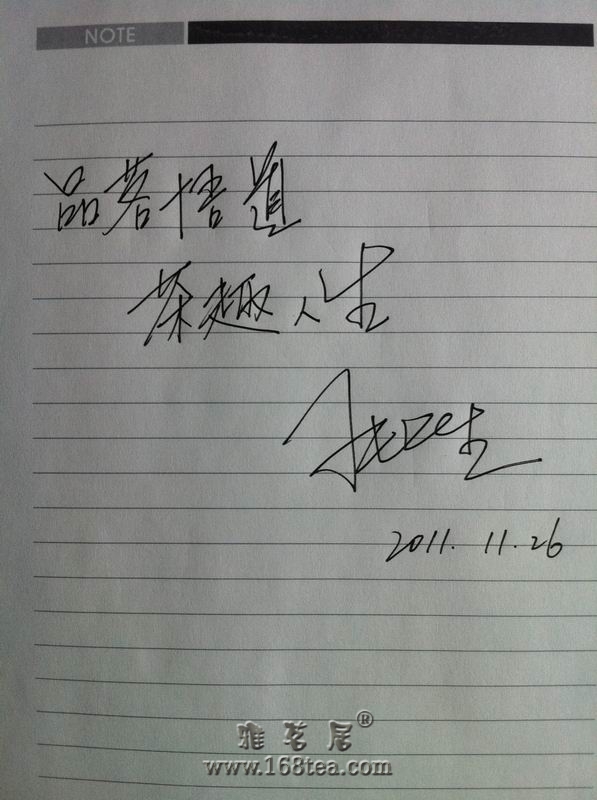 NOTE
品茗悟道
茶趣人生
2011.11.26
雅茗居®
www.168tea.com